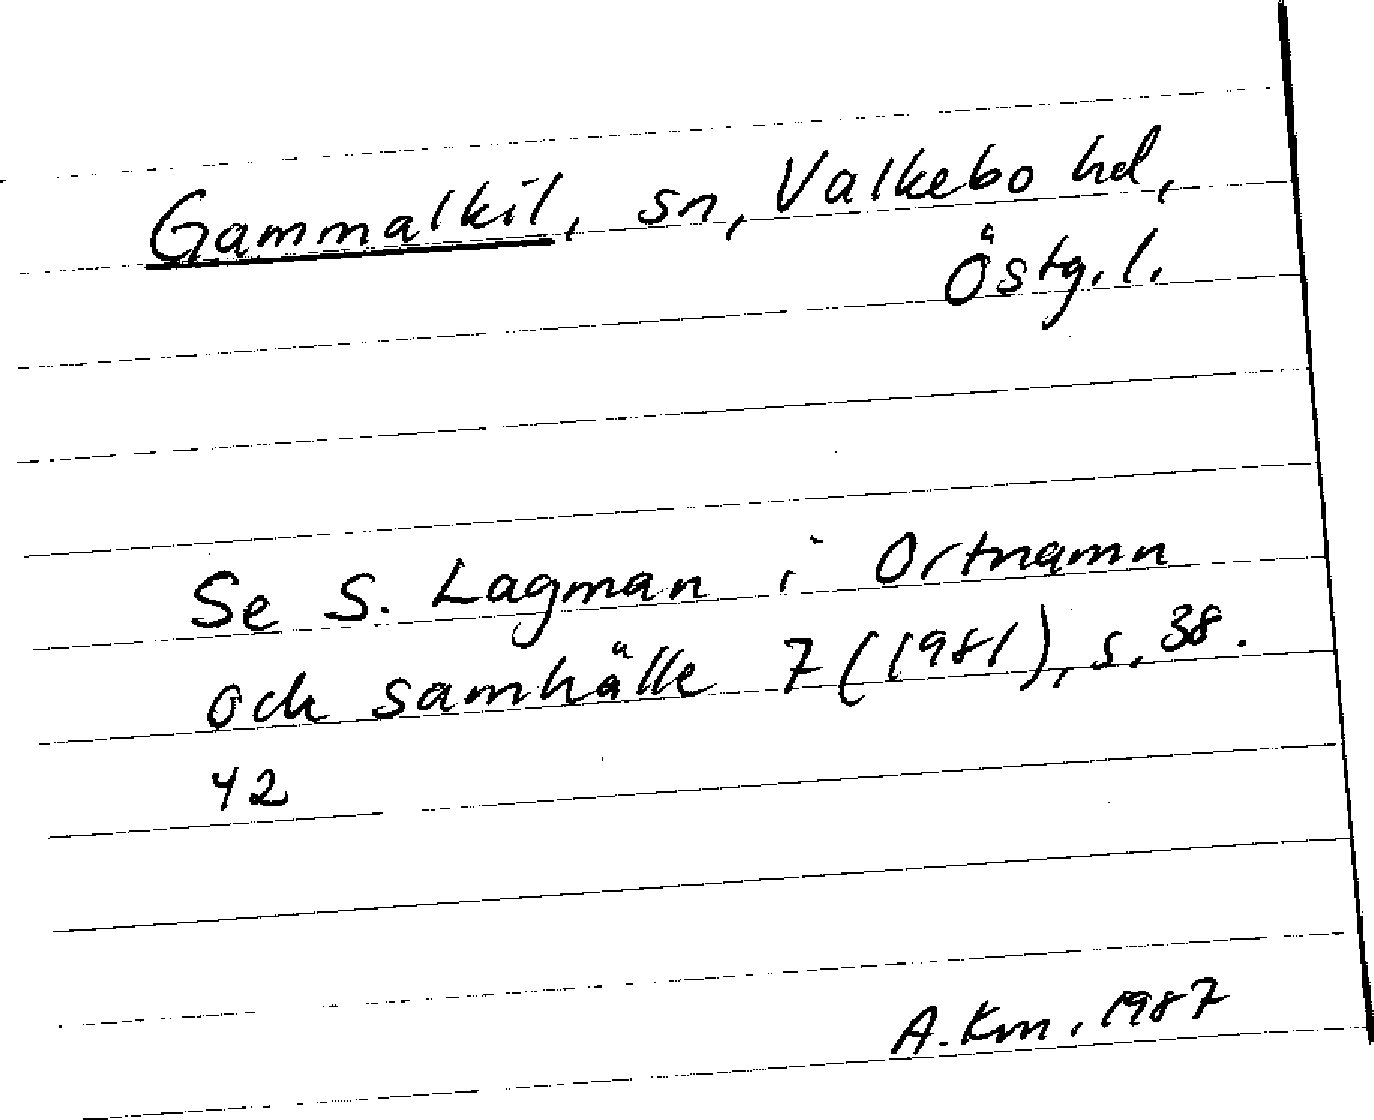 Gammalkil, sn, Valkebo hd,
Östg. l.
Se S. Lagman i Ortnamn
och samhälle 7 (1981), s. 38.
42
A. Km, 1987